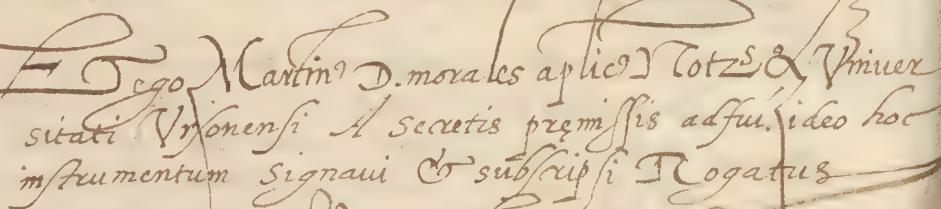 Et ego Martin⁹ D. morales aplic⁹ Not⁊s & Vniver
sitati Vrsonensi A Secretis pręmissis adfui. ideo hoc
instrumentum signavi & subscripsi Rogatus